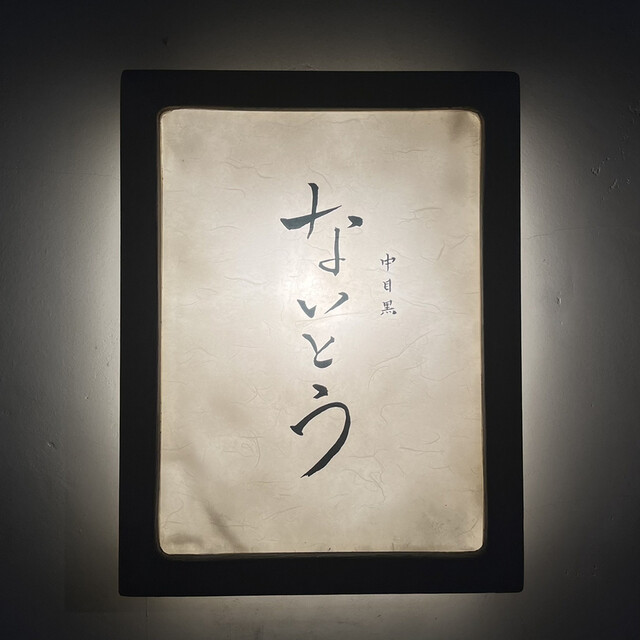 中目黒
ないとう